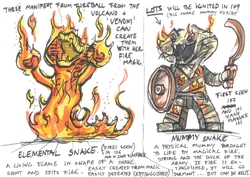 THESE MANIFEST FROM FIREBALL FROM THE
VOLCANO +
'VENOM'
CAN
CREATE
THEM
WITH
HER FIRE
MAGIC.
ELEMENTAL SNAKE
(FIRST SEEN
A LIVING FLAME IN SHAPE OF A SNAKE
SHOOT AND SPITS FIRE.
EASILY CREATED FROM MAGIC
EASILY DEFEATED (EXTINGUISHED)
LOTS WILL BE IGNITED IN 109
THIS SNAKE MUMMY EXHIBIT
FIRST SEEN
MUMMY SNAKE
A PHYSICAL MUMMY BROUGHT
TO LIFE BY MAGICAL FIRE.
STRONG AND THE BULK OF THE
ARMY. IF FIRE IS EX-
TINGUISHED, IT WILL GO
DORMANT... BUT CAN BE